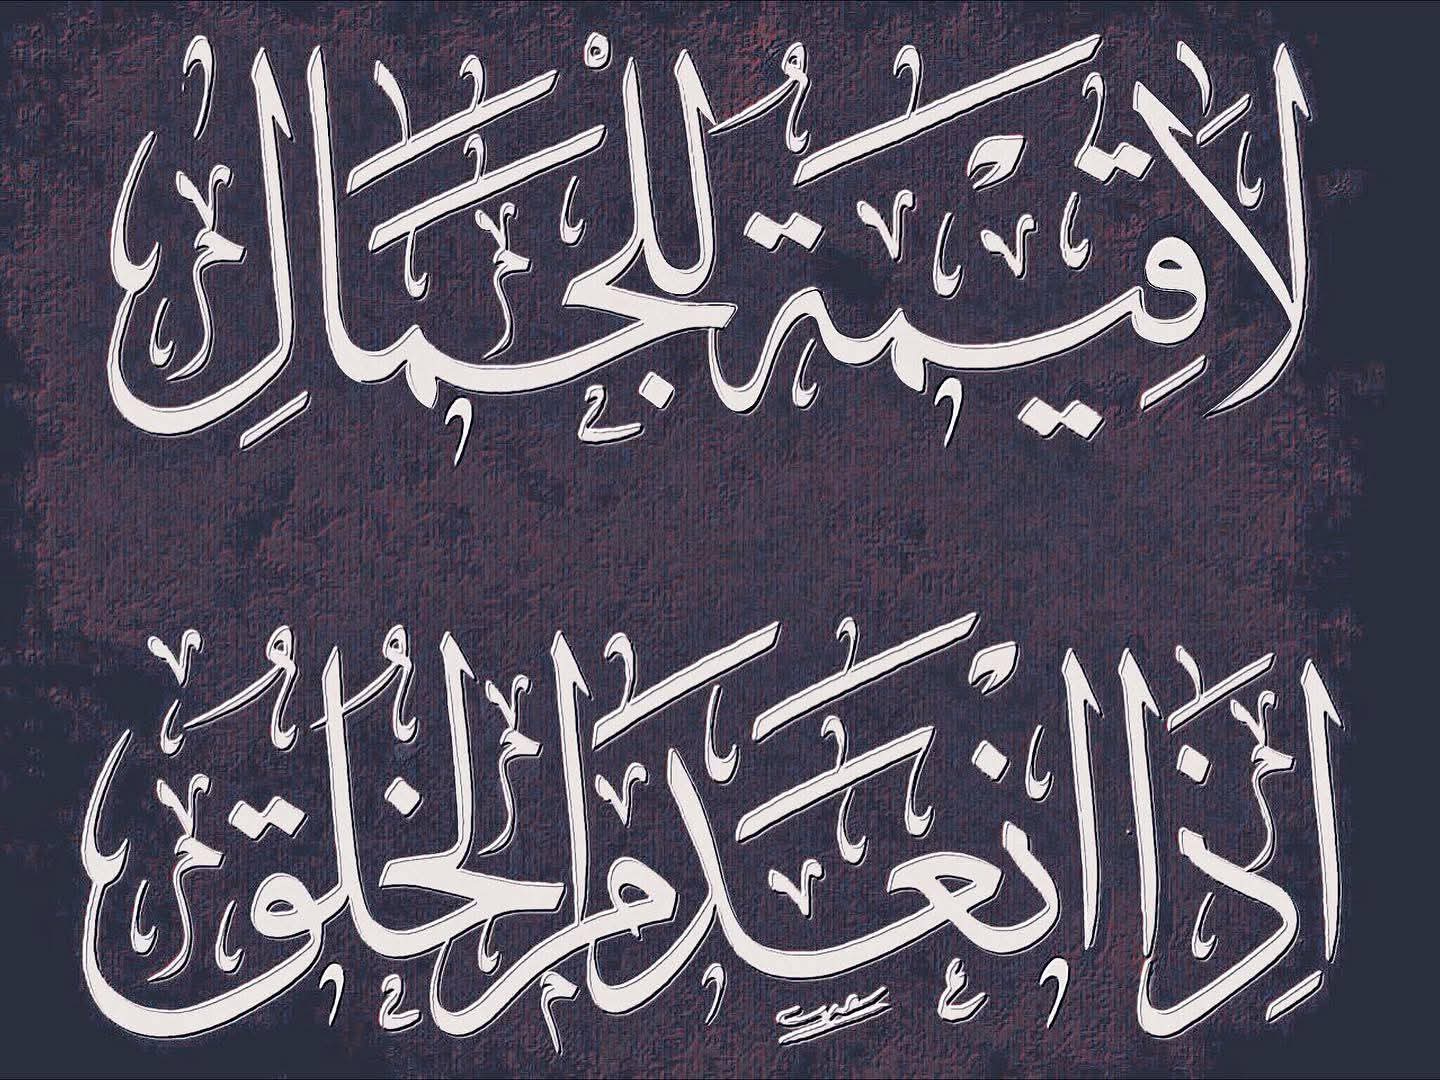 لَا قِيْمَةَ لِلْجَمَالِ
إِذَا انْعَدَمَ الْخُلُقُ